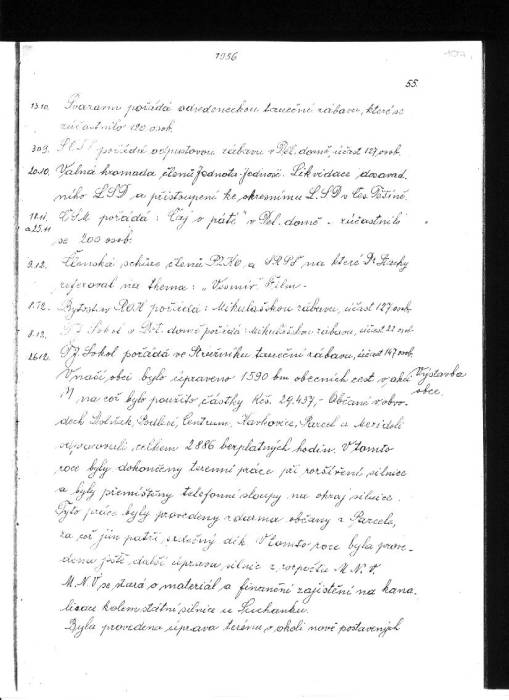 1956
55.
13.10. Svazarm pořádá odvedeneckou taneční zábavu, které se
zúčastnilo 120 osob.
30.9. pořádá odpustovou zábavu v Děl. domě, účast 127 osob.
20.10. Valná hromada členů Jednota-Jednost. Likvidace dosavad-
ního LSD a přistoupení ke okresnímu L.S.D v Čes. Těšíně.
18.11. ČSČK pořádá: "Čaj o páté" v Děl. domě - zúčastnilo
a 25.11 se 200 osob.
9.12. Členská schůze členů PZKO a SRPŠ na které Dr
referoval na thema: "Vesmír". Film-
1.12. v pořádá: Mikulášskou zábavu, účast 127 osob.
8.12. TJ Sokol v Nár. domě pořádá: Mikulášskou zábavu, účast
26.12. TJ. Sokol pořádá ve Střelníku taneční zábavu, účast 147 osob.
V naší obci bylo upraveno 1590 bm obecních cest v akci Výstavba
na což bylo použito částky Kčs. 29.437,- Občané v obvo- obce.
dech Centrum, Parcel a Mezidolí
odpracovali celkem 2886 bezplatných hodin. V tomto
roce byly dokončeny terenní práce při rozšíření silnice
a byly přemístěny telefonní sloupy na okraj silnice.
Tyto práce byly provedeny zdarma občany z Parcele,
za což jim patří srdečný dík. V tomto roce byla prove-
dena ještě další úprava silnic z rozpočtu M.N.V.
M.N.V se stará o materiál a finanční zajištění na kana-
lisace kolem státní silnice u Suchanku.
Byla provedena úprava terénu v okolí nově postavených